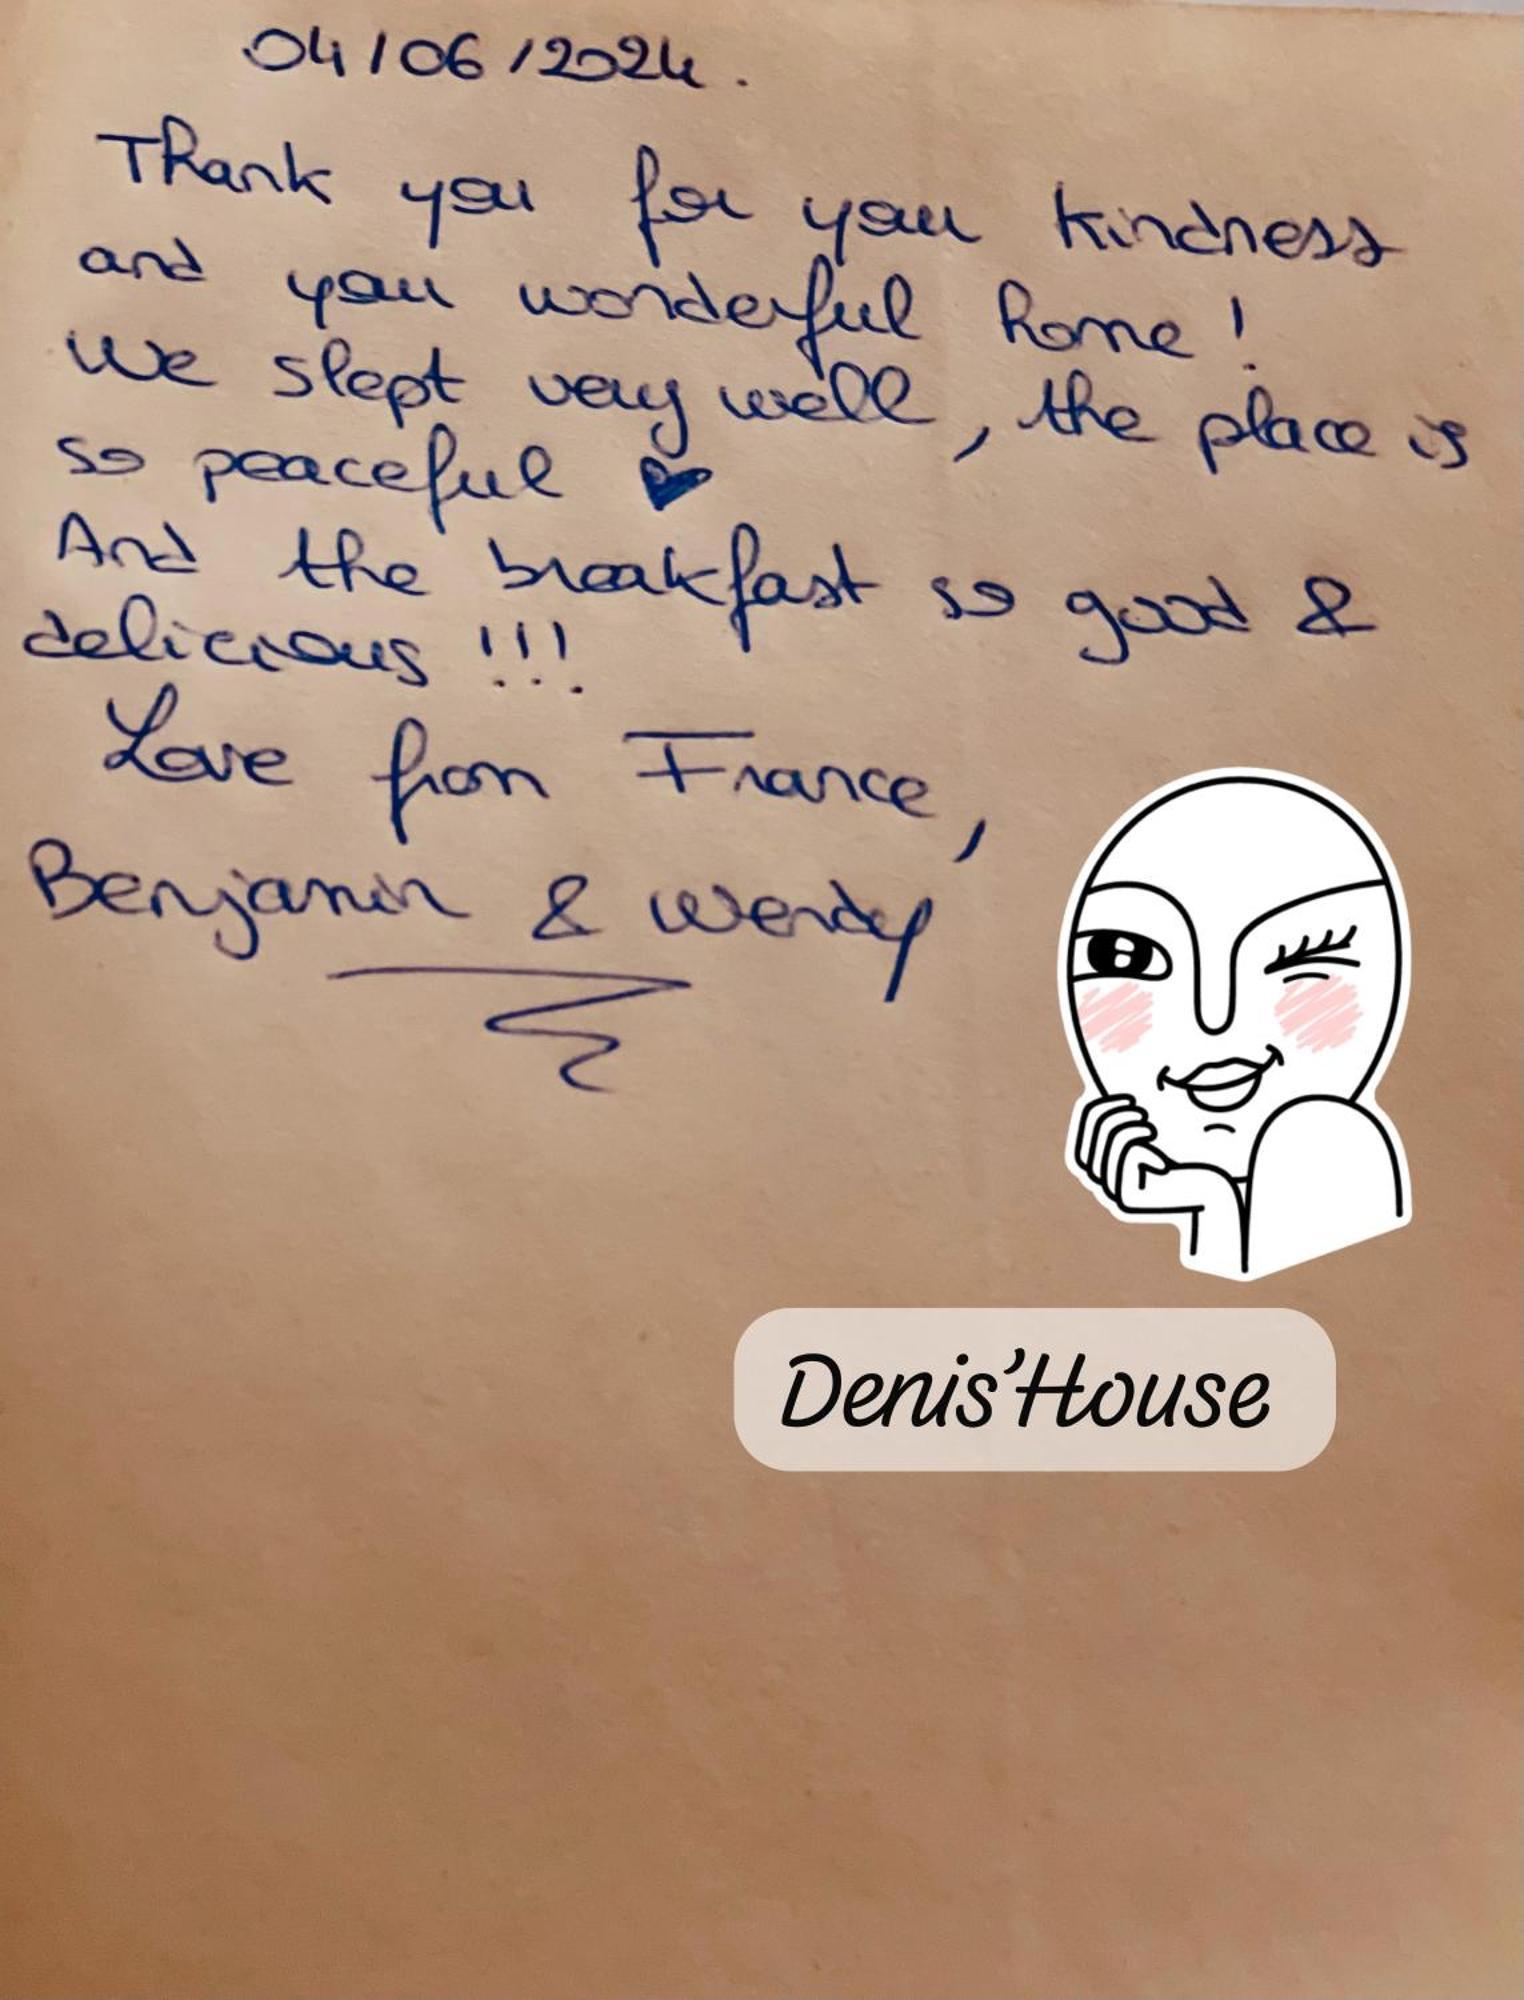 04/06/2024.
Thank you for your kindness
and your wonderful home !
We slept very well, the place is
so peaceful ♥
And the breakfast so good &
delicious !!!
Love from France,
Benjamin & Wendy
Denis'House